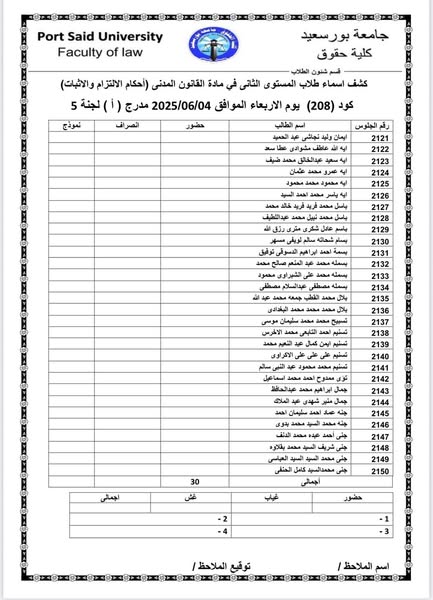 Port Said University
جامعة بورسعيد
Faculty of law
كلية حقوق
قسم شئون الطلاب
كشف اسماء طلاب المستوى الثانى في مادة القانون المدنى (أحكام الالتزام والاثبات)
كود (208) يوم الاربعاء الموافق 2025/06/04 مدرج ( أ ) لجنة 5
رقم الجلوس اسم الطالب حضور انصراف نموذج
2121 ايمان وليد نجاشى عبد الحميد
2122 ايه الله عاطف مشوادى عطا سعد
2123 ايه سعيد عبدالخالق محمد ضيف
2124 ايه عمرو محمد عثمان
2125 ايه محمود محمد محمود
2126 ايه ياسر محمد احمد السيد
2127 باسل محمد فريد فريد خالد محمد
2128 باسل محمد نبيل محمد عبداللطيف
2129 باسم عادل شكرى مترى رزق الله
2130 بسام شحاته سالم لويفى مسهر
2131 بسمة احمد ابراهيم الدسوقى توفيق
2132 بسمله محمد عبد المنعم صالح محمد
2133 بسمله محمد على الشبراوى محمود
2134 بسمله مصطفى عبدالسلام مصطفى
2135 بلال محمد القطب جمعه محمد عبد الله
2136 بلال محمد محمد محمد البغدادى
2137 تسبيح محمد محمد سليمان موسى
2138 تسنيم احمد التابعى محمد الاخرس
2139 تسنيم ايمن كمال عبد النعيم محمد
2140 تسنيم على على على الاكراوى
2141 تسنيم محمد محمود عبد النبى سالم
2142 تؤى ممدوح احمد محمد اسماعيل
2143 جمال ابراهيم محمد عبدالحافظ
2144 جمال منير شهدى عبد الملاك
2145 جنه عماد احمد سليمان احمد
2146 جنه محمد السيد محمد بدوى
2147 جنى أحمد عبده محمد الدنف
2148 جنى شريف السيد محمد بقلاوه
2149 جنى محمد السيد السيد العباسى
2150 جنى محمدالسيد كامل الحنفى
أجمالى 30
حضور غياب غش اجمالى
1 - 2 -
3 - 4 -
اسم الملاحظ / توقيع الملاحظ /